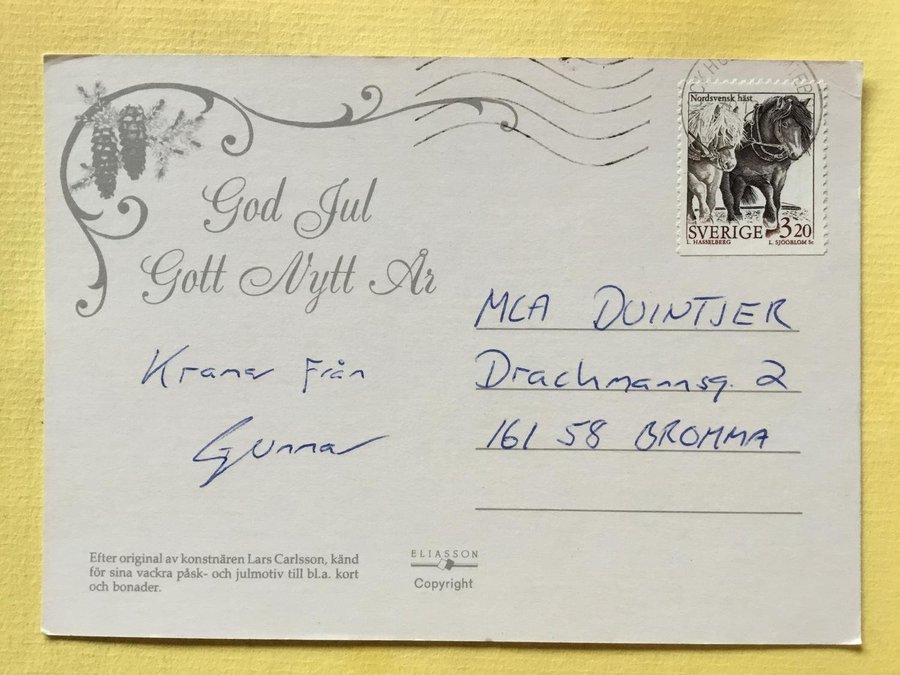 God Jul
Gott Nytt År
Kramar från
Gunnar
Nordsvensk häst
SVERIGE 3.20
L. HASSELBERG
L. SJÖÖBLOM Sc
MCA DUINTJER
Drachmannsg. 2
161 58 BROMMA
Efter original av konstnären Lars Carlsson, känd
för sina vackra påsk- och julmotiv till bl.a. kort
och bonader.
ELIASSON
Copyright